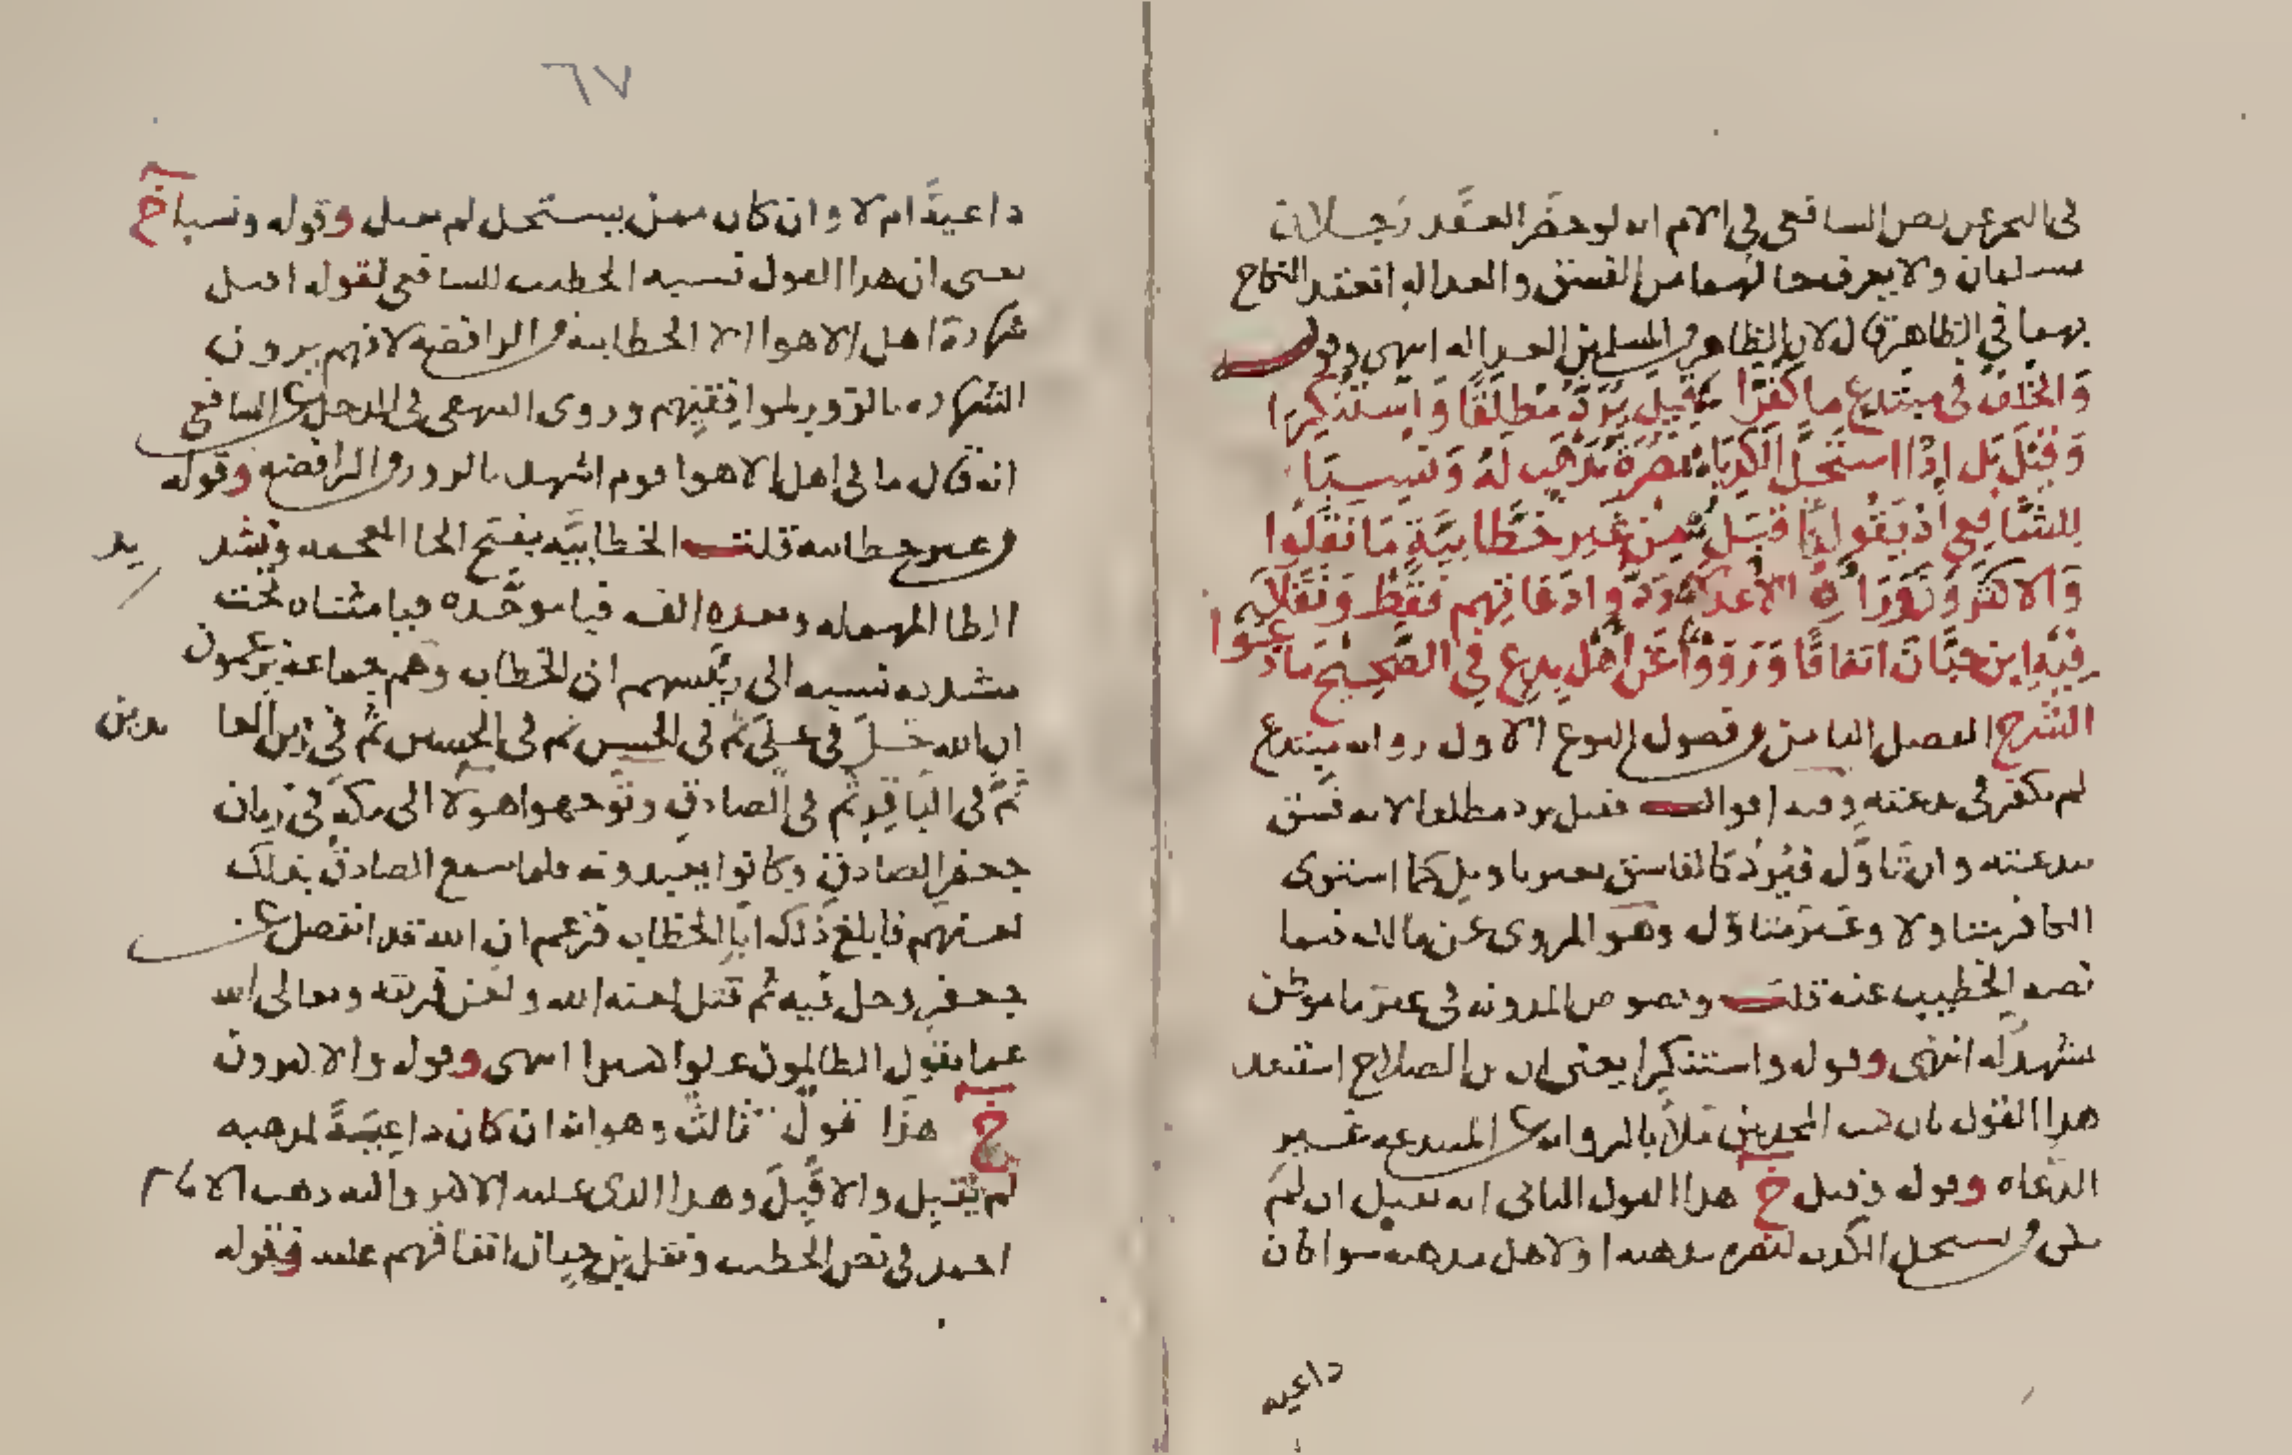 في البحر عن نص الشافعي في الام انه لو حضر العقد رجلان
مسلمان ولا يعرف حالهما من الفسق والعدالة انعقد النكاح
بهما في الظاهر قال لان الظاهر من المسلمين العدالة انتهى وقوله
والخلف في مبتدع ما كفرا قيل يرد مطلقا واستنكرا
وقيل بل اذا استحل الكذبا نصرة مذهب له ونسبا
للشافعي اذ يقول اقبل من غير خطابية ما نقلوا
والاكثرون وراه الاعدلا ردوا دعاتهم فقط ونقلا
فيه ابن حبان اتفاقا ورووا عن اهل بدع في الصحيح ما دعوا
الشرح الفصل الثامن من فصول النوع الاول رواية مبتدع
لم يكفر في بدعته وفيه اقوال فقيل يرد مطلقا لانه فسق
ببدعته وان تاول فيرد كالفاسق بغير تاويل كما استوى
الكافر متاولا وغير متاول وهو المروي عن مالك فيما
نصه الخطيب عنه قلت ونصوص المدونة في غير ما موطن
تشهد له انتهى وقوله واستنكرا يعني ان بن الصلاح استبعد
هذا القول بان كتب المحدثين ملأ بالرواية عن المبتدعة غير
الدعاه وقوله وقيل خ هذا القول الثاني انه يقبل ان لم
يكن من يستحل الكذب لنصرة مذهبه او لاهل مذهبه سوا كان
داعيه
٦٧
داعية ام لا وان كان ممن يستحل لم يقبل وقوله ونسبا خ
يعني ان هذا القول نسبه الخطيب للشافعي لقوله اقبل
شهادة اهل الاهوا الا الخطابية من الرافضة لانهم يرون
الشهاده بالزور لموافقيهم وروى البيهقي في المدخل عن الشافعي
انه قال ما في اهل الاهوا قوم اشهد بالزور من الرافضة وقوله
من غير خطابيه قلت الخطابيه بفتح الخا المعجمه وتشد يد
الطا المهمله وبعده الف فبا موحده فيا مثناه تحت
مشدده نسبه الى رئيسهم ابن الخطاب وهم جماعة يزعمون
ان الله حل في علي ثم في الحسن ثم في الحسين ثم في زين العا بدين
ثم في الباقر ثم في الصادق وتوجهوا هولا الى مكة في زمان
جعفر الصادق وكانوا يعبدونه فلما سمع الصادق بذلك
لعنهم فابلغ ذلك ابا الخطاب فزعم ان الله قد انفصل عن
جعفر وحل فيه ثم قتل لعنه الله ولعن فرقته وتعالى الله
عما يقول الظالمون علوا كبيرا انتهى وقوله والاكثرون
خ هذا قول ثالث وهو انه ان كان داعية لمذهبه
لم يقبل والا قبل وهذا الذي عليه الاكثر واليه ذهب الامام
احمد في نص الخطيب ونقل بن حبان اتفاقهم عليه وقوله